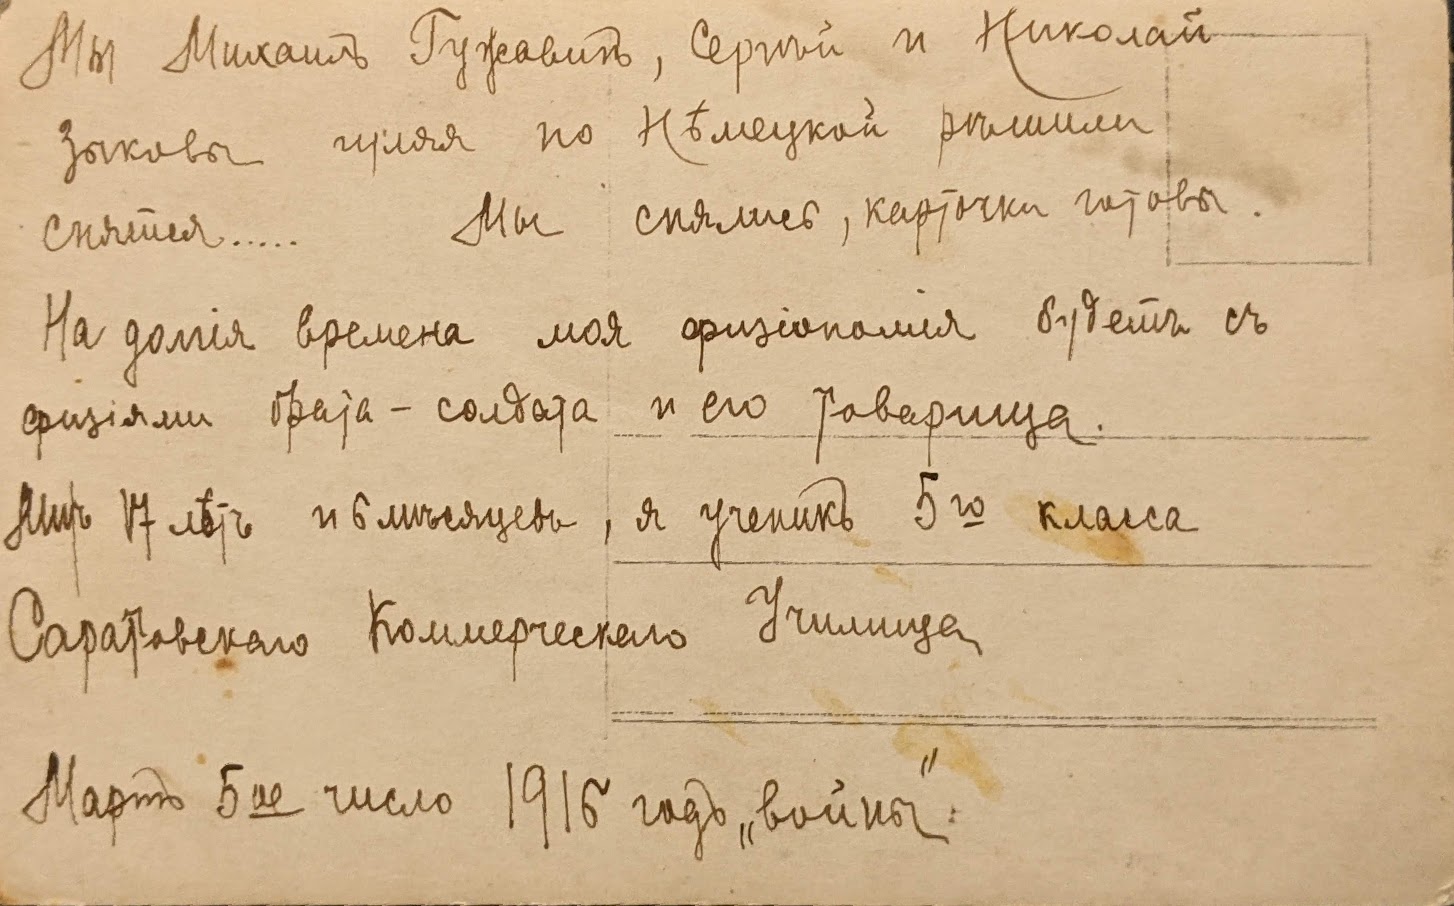 Мы Михаилъ Гужавинъ, Сергѣй и Николай
Зыковы гуляя по Нѣмецкой рѣшили
снятся..... Мы снялись, карточки готовы.
На долгія времена моя физіономія будетъ съ
физіями брата - солдата и его товарища.
Мнѣ 17 лѣтъ и 6 мѣсяцевъ, я ученикъ 5го класса
Саратовскаго Коммерческаго Училища
Мартъ 5ое число 1916 годъ „войны".